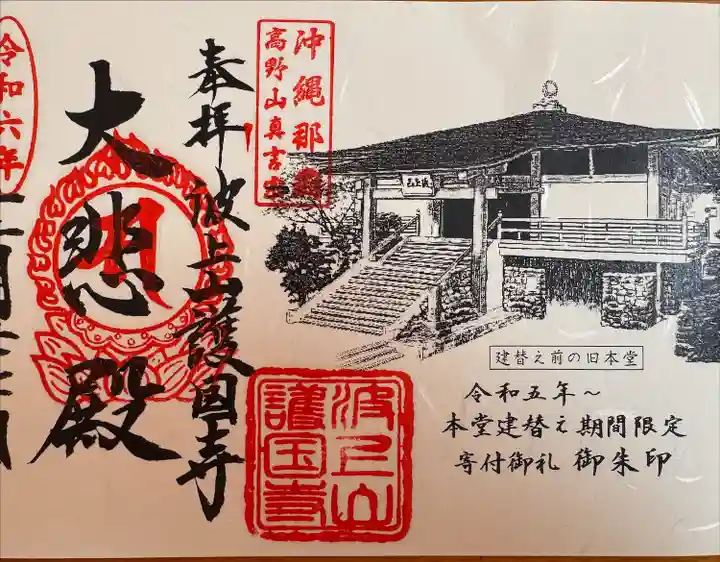 沖縄那覇
高野山真言宗
奉拝
波上山護国寺
大悲殿
令和六年
波上山
護国寺
波上山
建替え前の旧本堂
令和五年~
本堂建替え期間限定
寄付御礼 御朱印